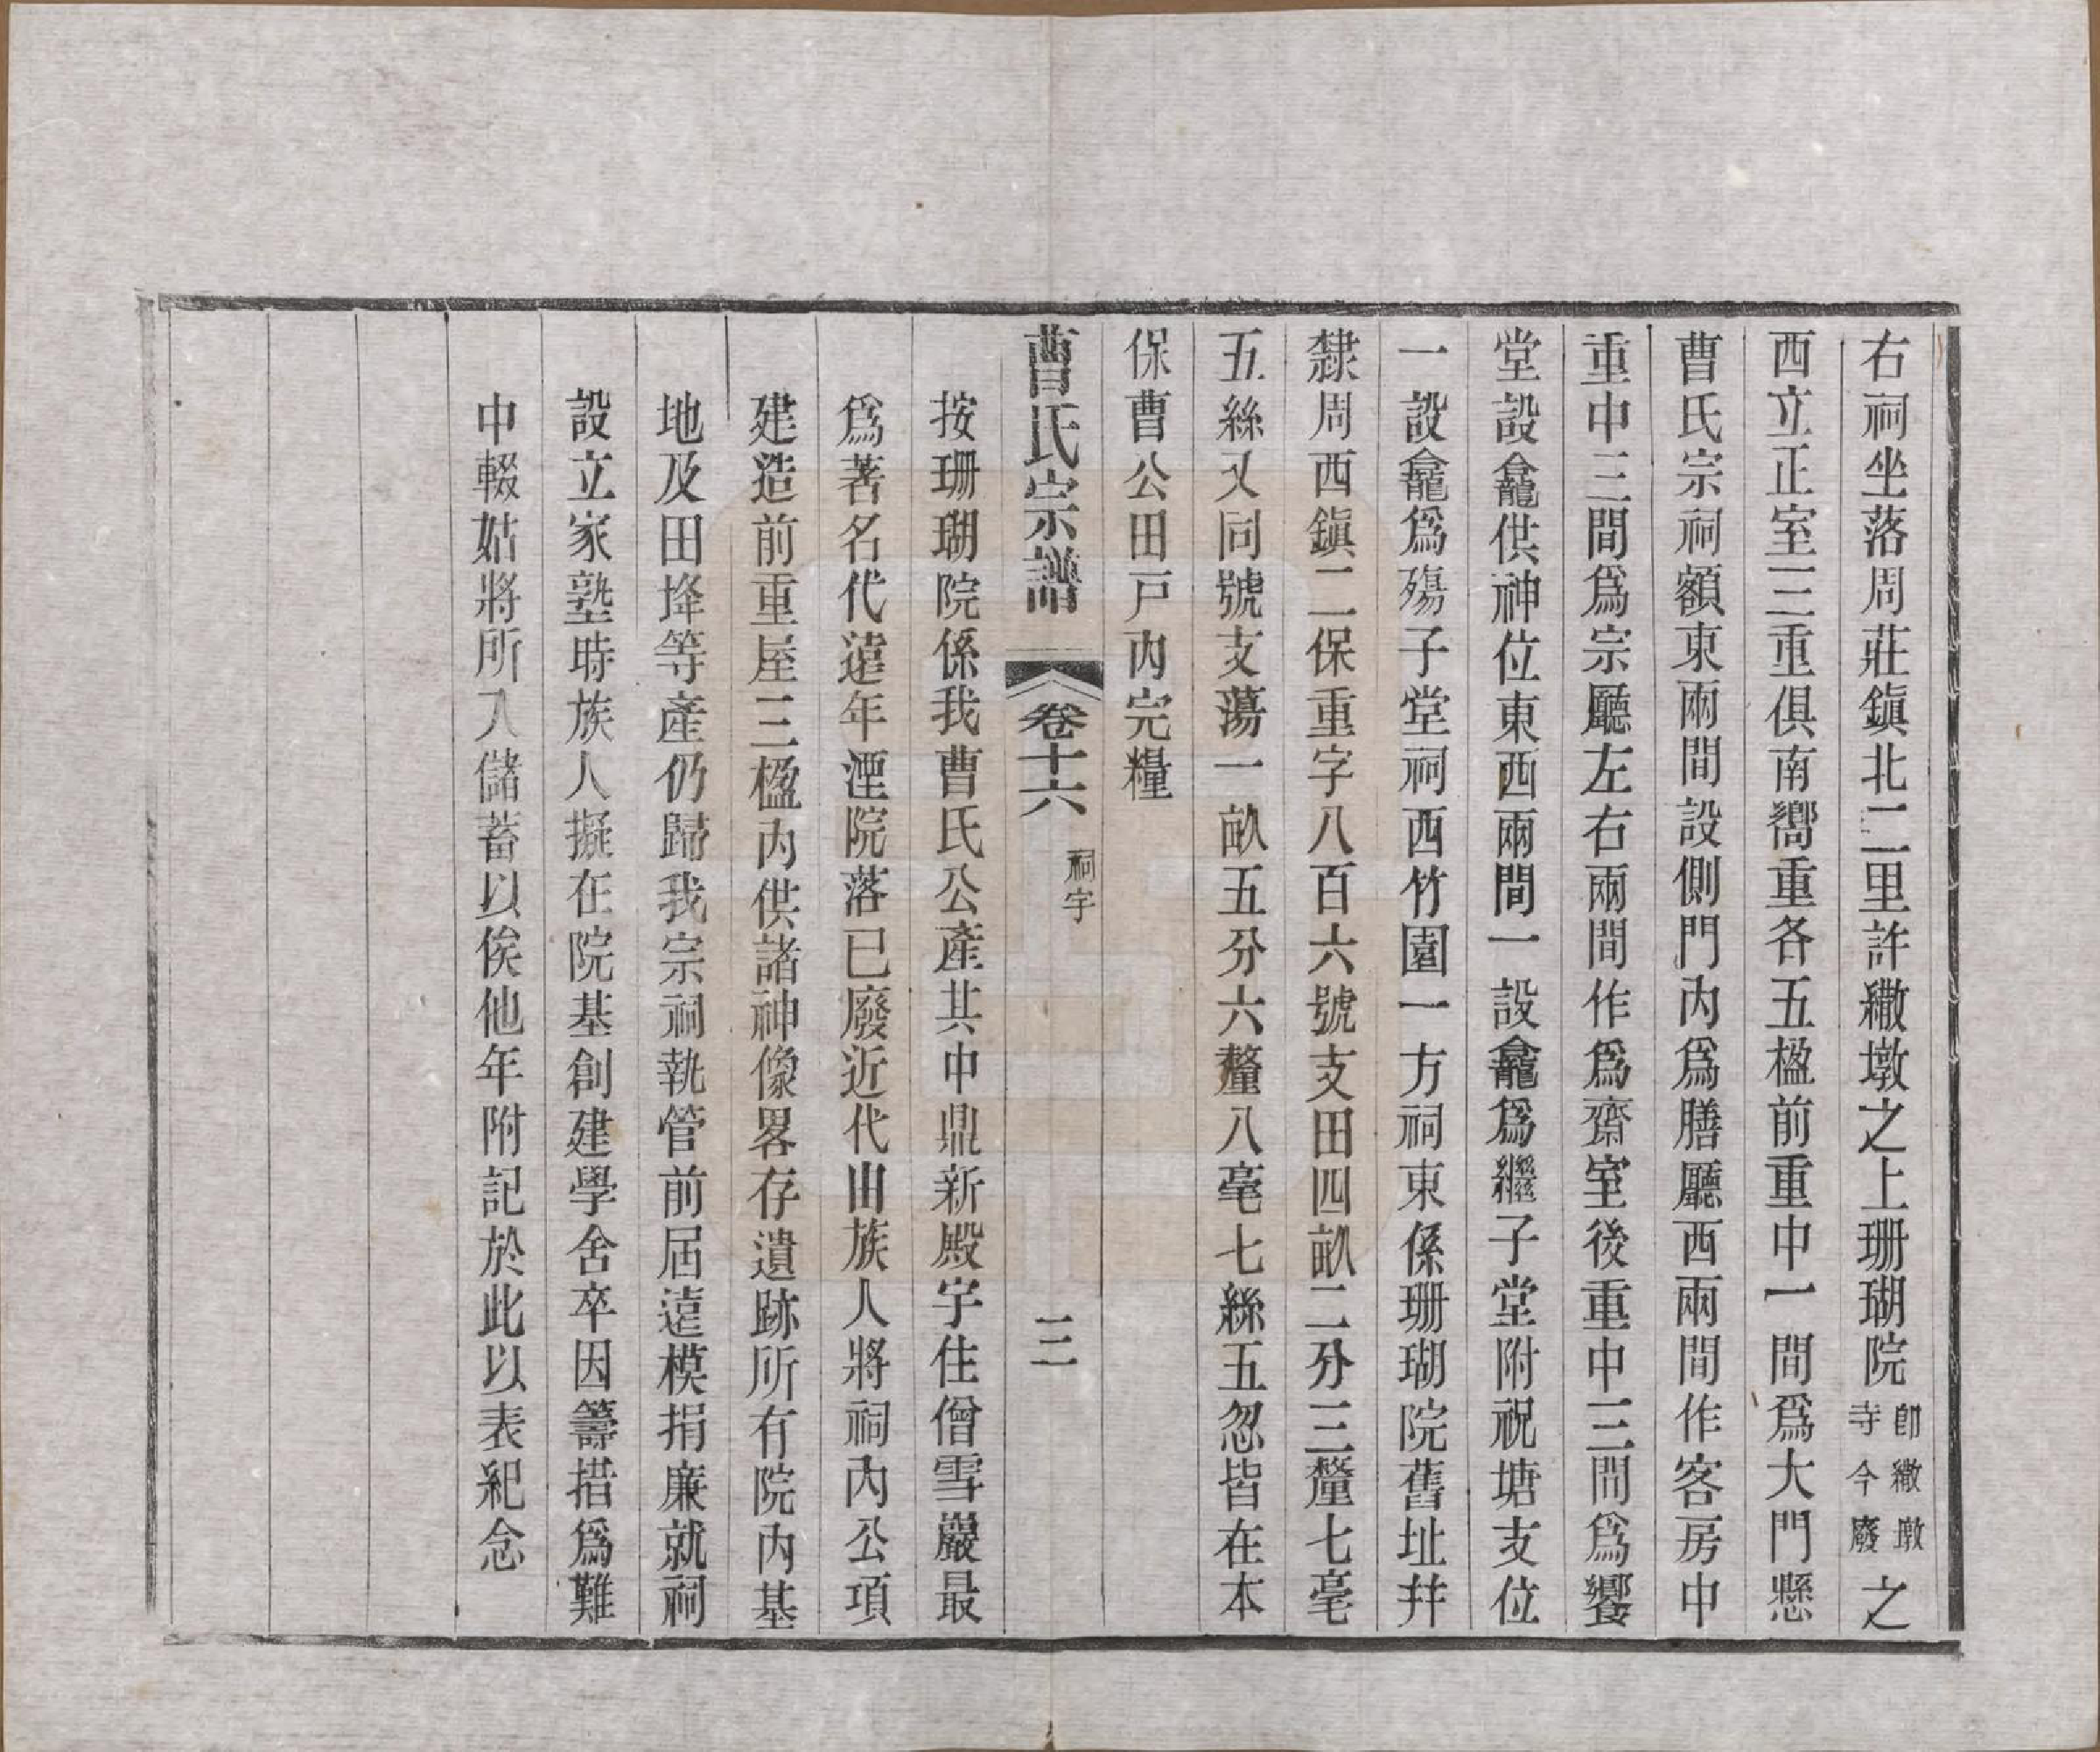 右祠坐落周莊鎭北二里許繖墩之上珊瑚院卽繖墩寺今廢之
西立正室三重俱南嚮重各五楹前重中一間爲大門懸
曹氏宗祠額東兩間設側門內爲膳廳西兩間作客房中
重中三間爲宗廳左右兩間作爲齋室後重中三間爲饗
堂設龕供神位東西兩間一設龕爲繼子堂附祝塘支位
一設龕爲殤子堂祠西竹園一方祠東係珊瑚院舊址幷
隸周西鎭二保重字八百六號支田四畝二分三釐七毫
五絲又同號支蕩一畝五分六釐八毫七絲五忽皆在本
保曹公田戶內完糧
曹氏宗譜
卷十六
祠宇
三
按珊瑚院係我曹氏公產其中鼎新殿宇住僧雪巖最
爲著名代遠年湮院落已廢近代由族人將祠內公項
建造前重屋三楹內供諸神像畧存遺跡所有院內基
地及田埄等產仍歸我宗祠執管前屆遠模捐廉就祠
設立家塾時族人擬在院基創建學舍卒因籌措爲難
中輟姑將所入儲蓄以俟他年附記於此以表紀念